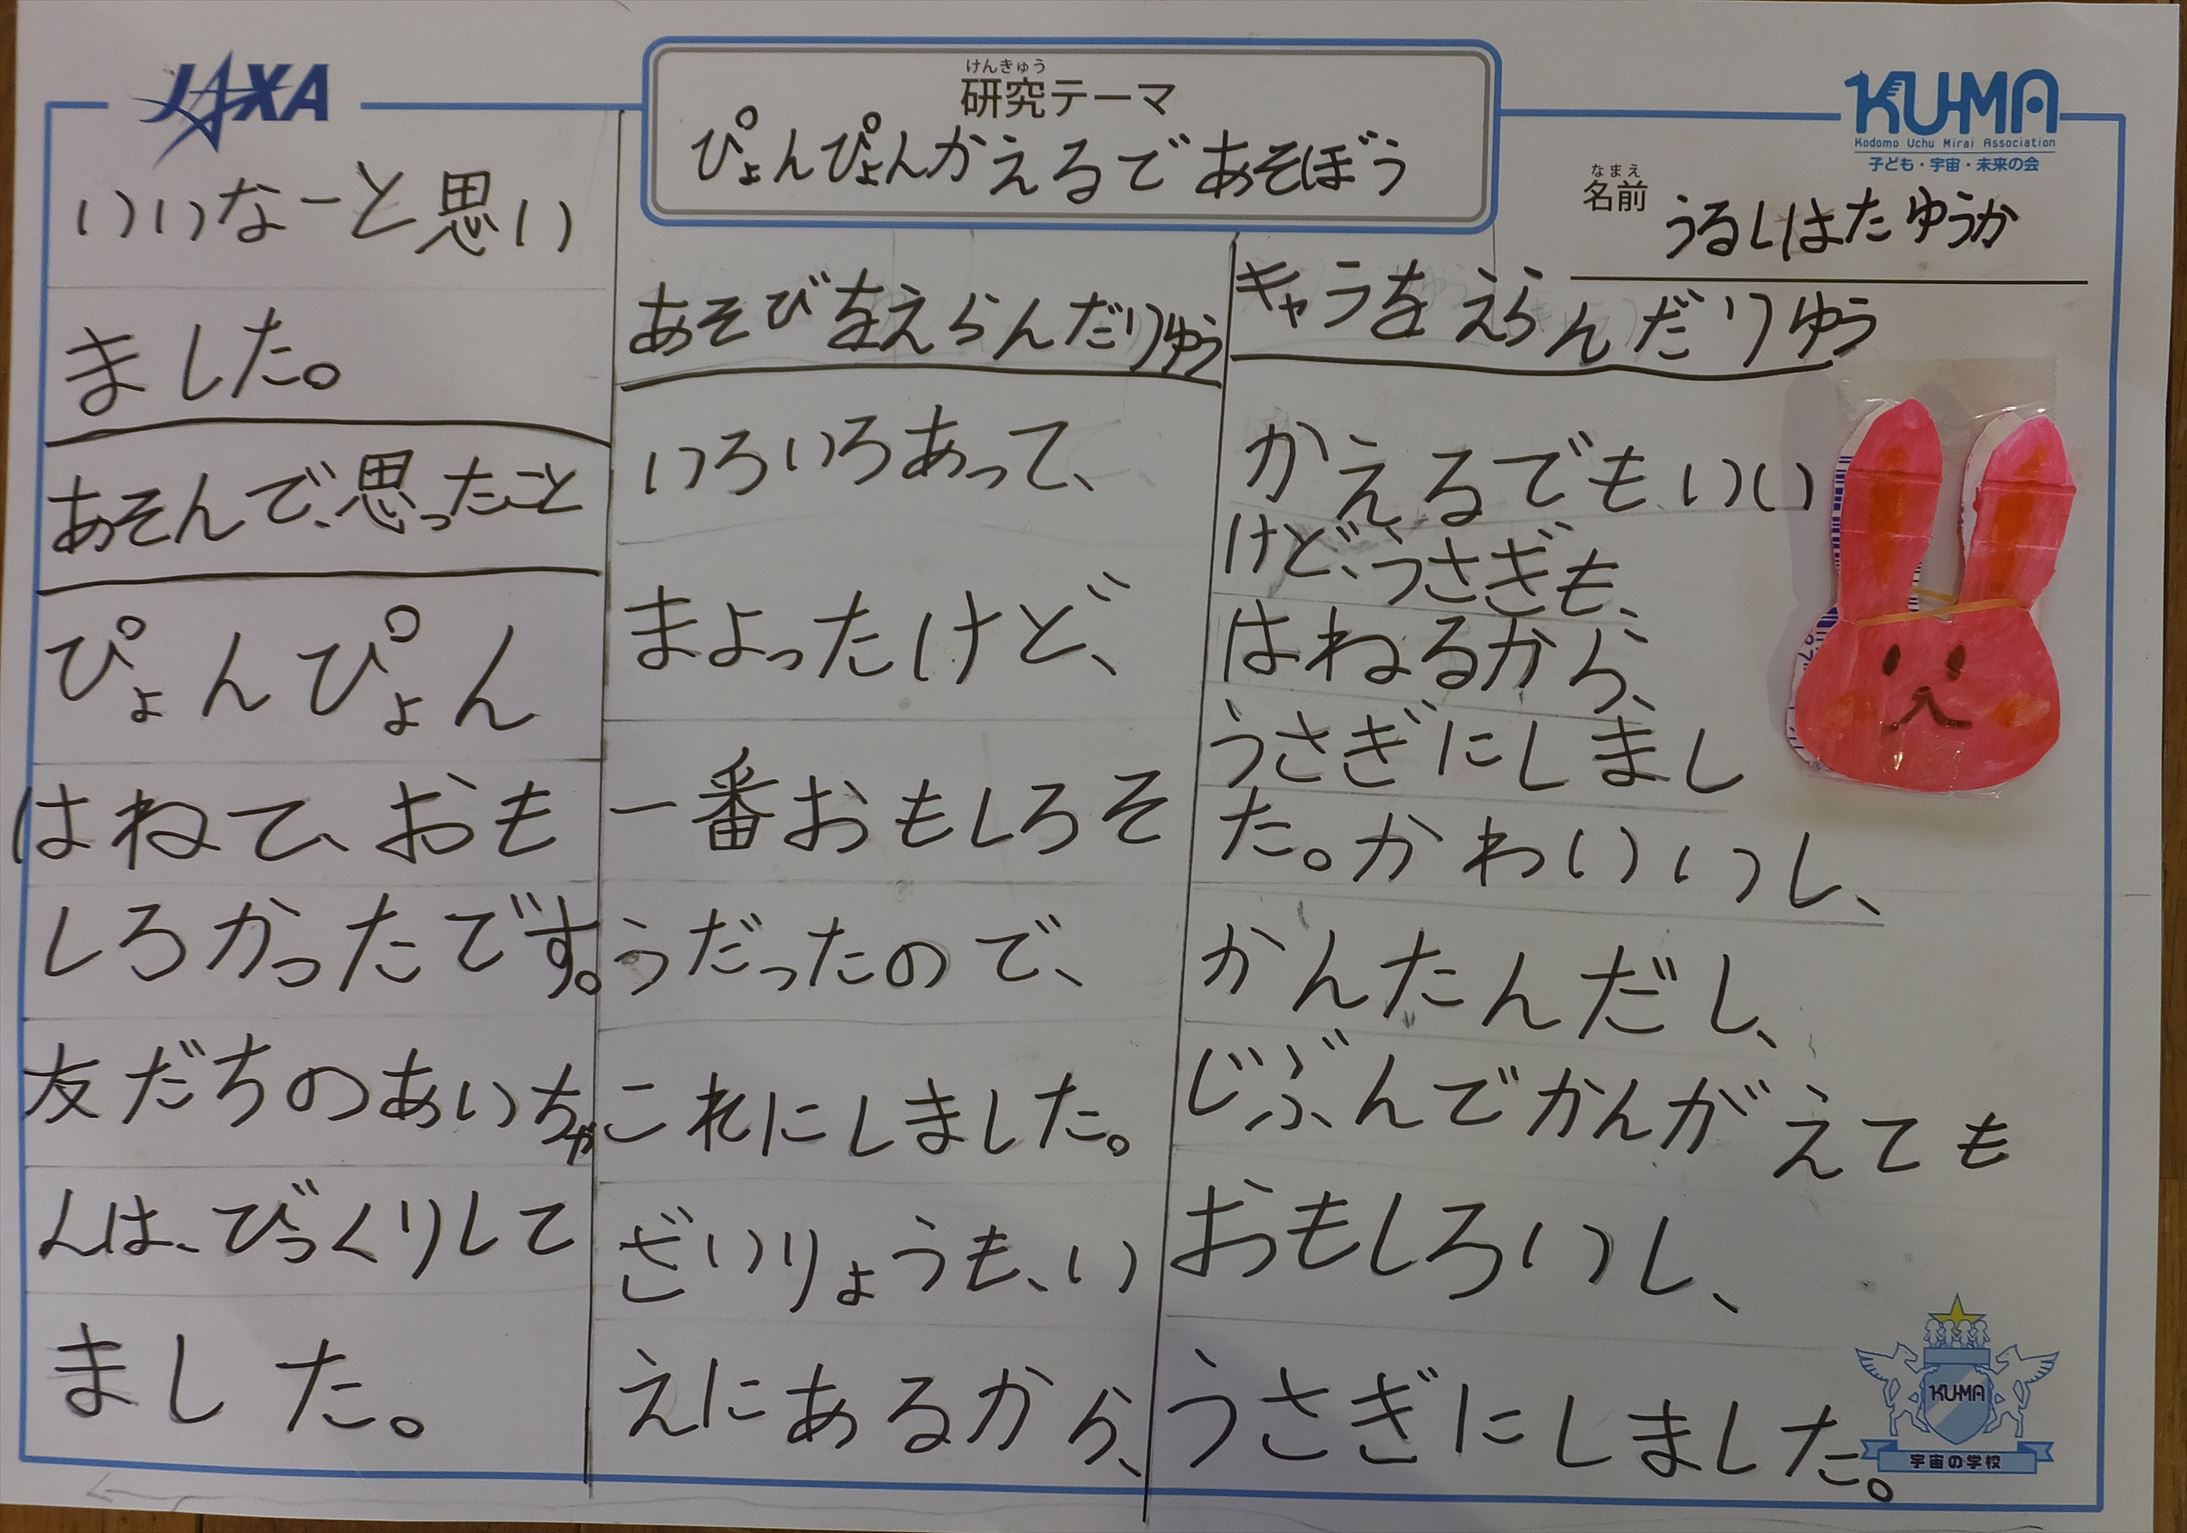 JAXA
けんきゅう
研究テーマ
ぴょんぴょんかえるであそぼう
KU-MA
Kodomo Uchu Mirai Association
子ども・宇宙・未来の会
なまえ
名前
うるしはたゆうか
キャラをえらんだりゆう
かえるでもいい
けど、うさぎも、
はねるから、
うさぎにしまし
た。かわいいし、
かんたんだし、
じぶんでかんがえても
おもしろいし、
うさぎにしました。
あそびをえらんだりゆう
いろいろあって、
まよったけど、
一番おもしろそ
うだったので、
これにしました。
ざいりょうも、い
えにあるから、
いいなーと思い
ました。
あそんで、思ったこと
ぴょんぴょん
はねて、おも
しろかったです。
友だちのあいちゃ
んは、びっくりして
ました。
KU-MA
宇宙の学校